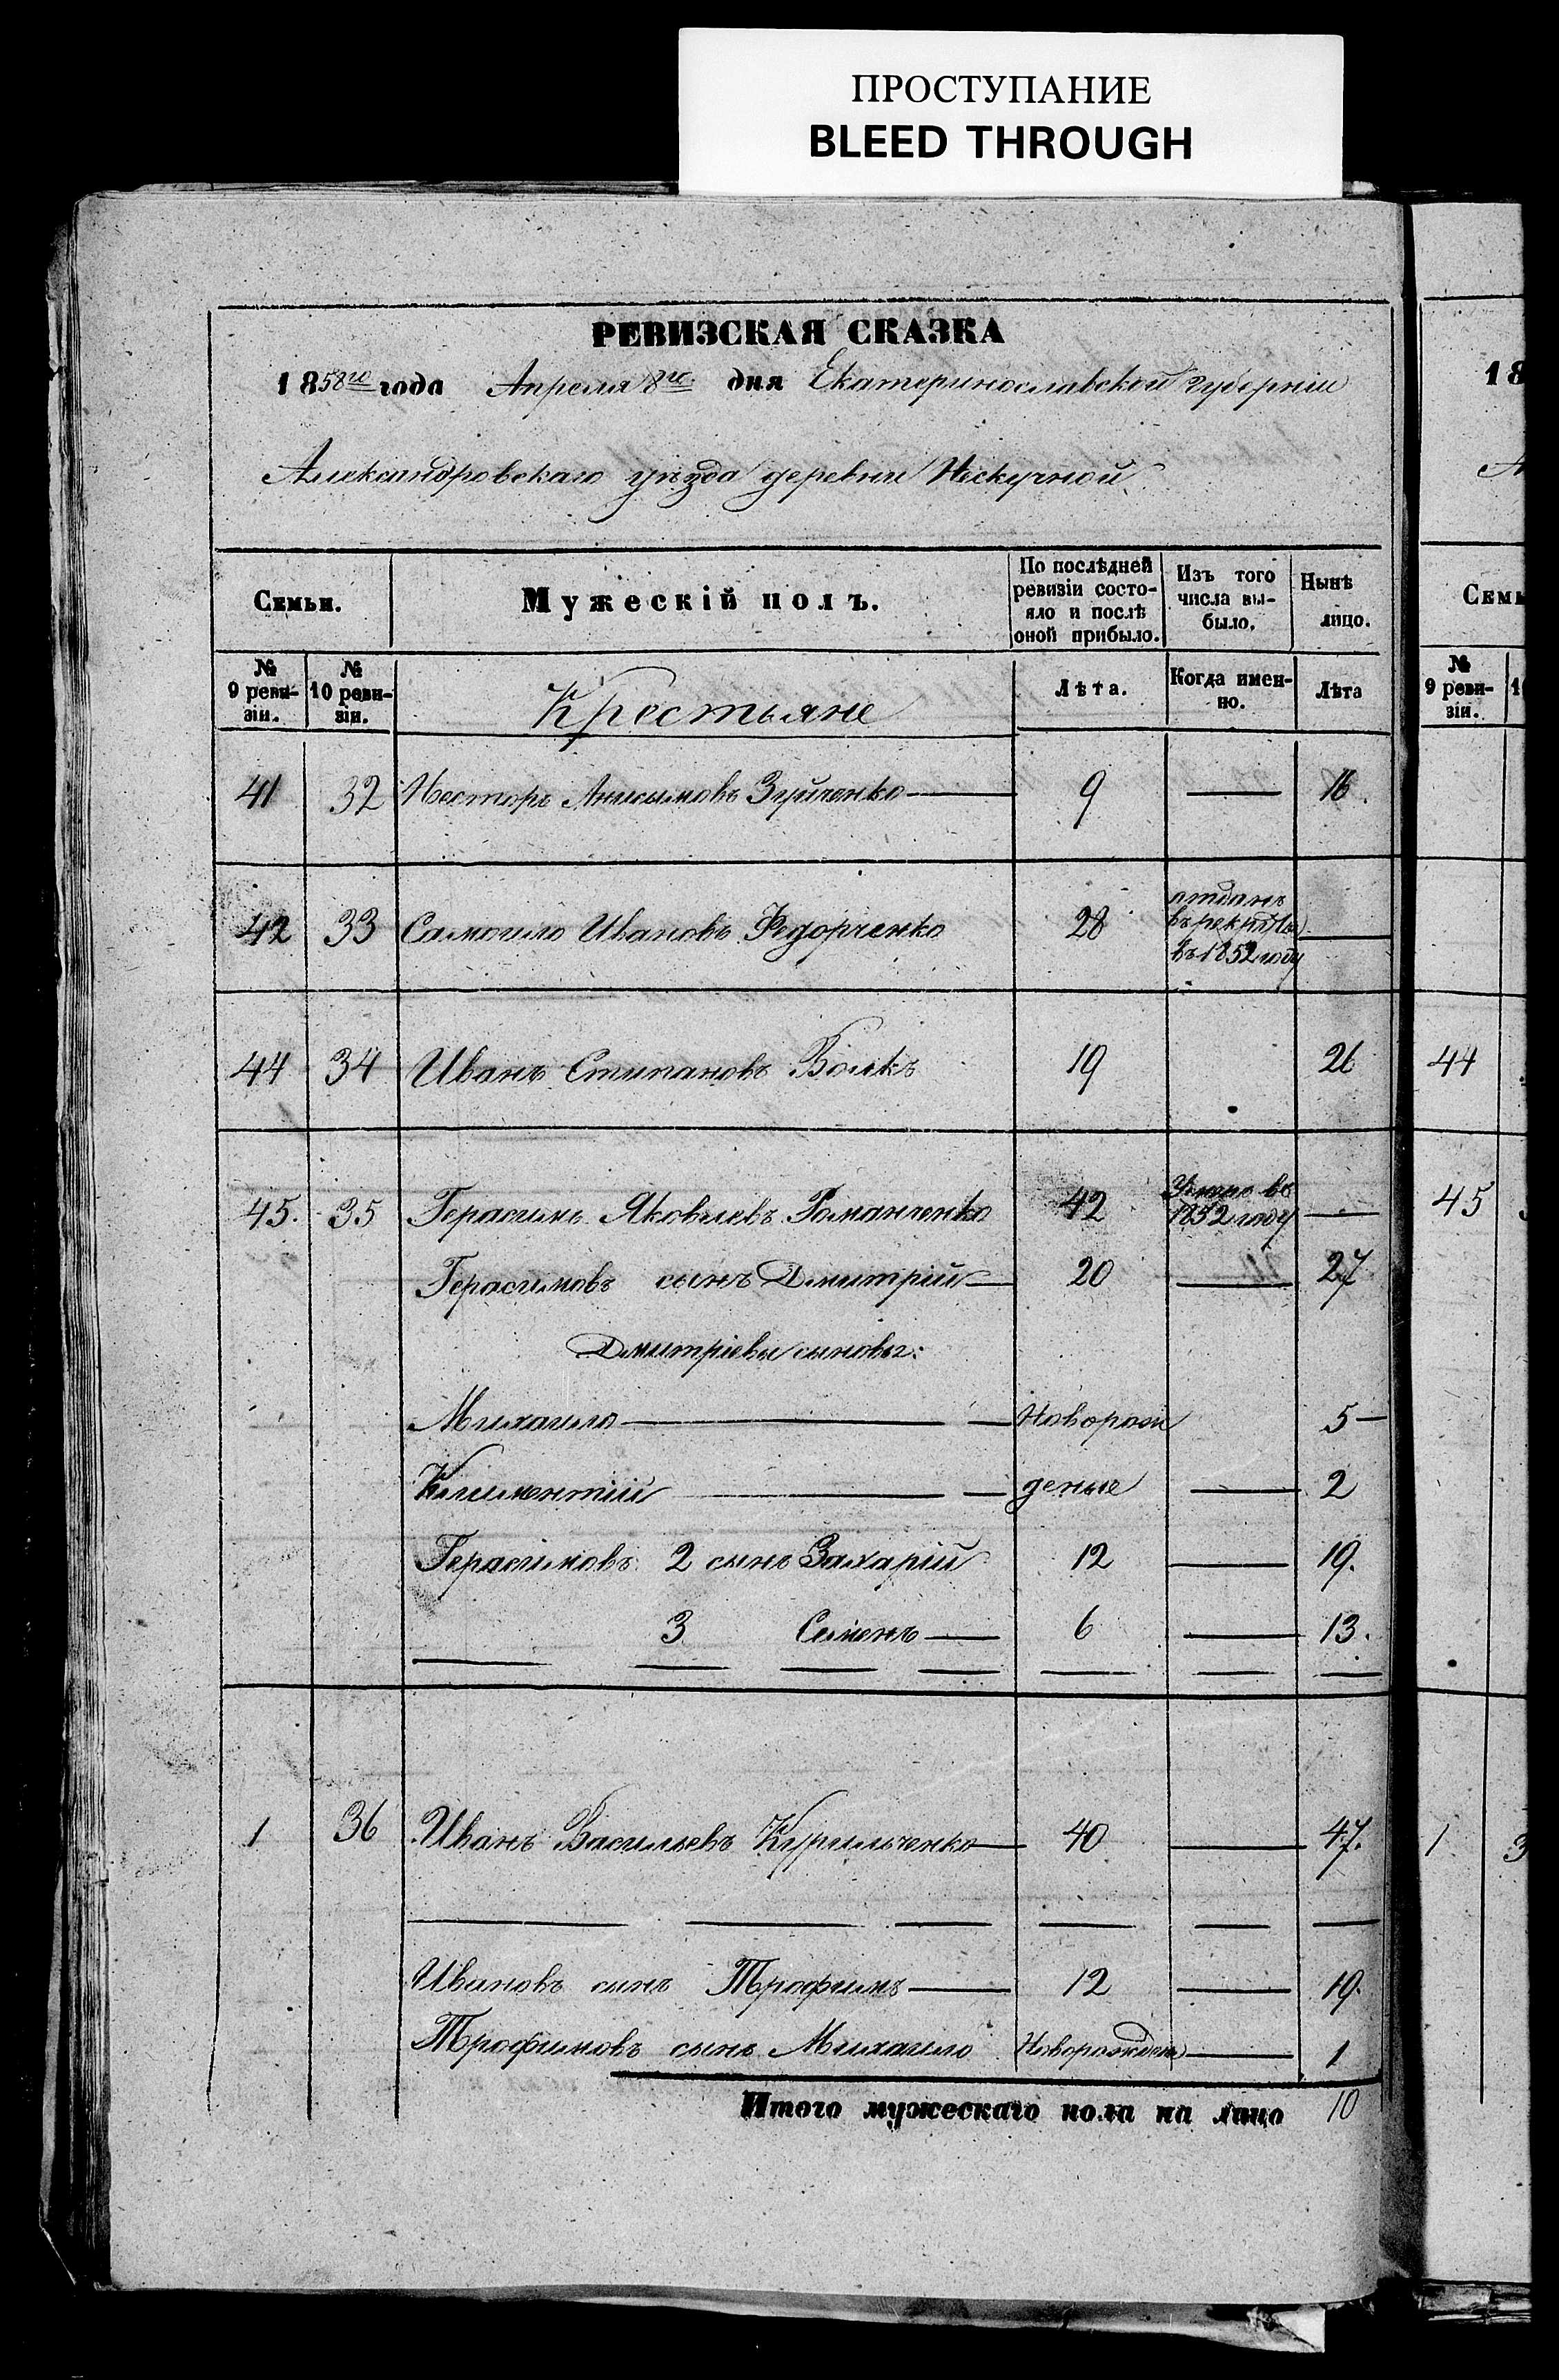 ПРОСТУПАНИЕ
BLEED THROUGH
РЕВИЗСКАЯ СКАЗКА
1858го года Апреля 8го дня Екатеринославской губерніи
Александровскаго уѣзда деревни Нескучной
Семьи. Мужескій полъ. По послѣдней ревизіи состояло и послѣ оной прибыло. Изъ того числа выбыло. Нынѣ лицо.
№ 9 ревизіи. № 10 ревизіи. Крестьяне Лѣта. Когда именно. Лѣта
41 32 Несторъ Анисимовъ Зуйченко 9 — 16.
42 33 Самойло Ивановъ Федорченко 28 отданъ въ рекруты въ 1852 году —
44 34 Иванъ Стипановъ Волкъ 19 26
45. 35 Герасимъ Яковлевъ Романченко 42 Умеръ въ 1852 году —
Герасимовъ сынъ Дмитрій 20 — 27
Дмитріевы сыновья:
Михаило — Новорож 5 —
Климентій — деные — 2
Герасимовъ 2 сынъ Захарій 12 — 19.
3 Семенъ — 6 — 13.
1 36 Иванъ Васильевъ Курильченко 40 — 47.
Ивановъ сынъ Трофимъ — 12 — 19.
Трофимовъ сынъ Михаило Новорожден — 1
Итого мужескаго пола на лицо 10
18
Семь
№ 9 ревизіи.
44
45
1 3